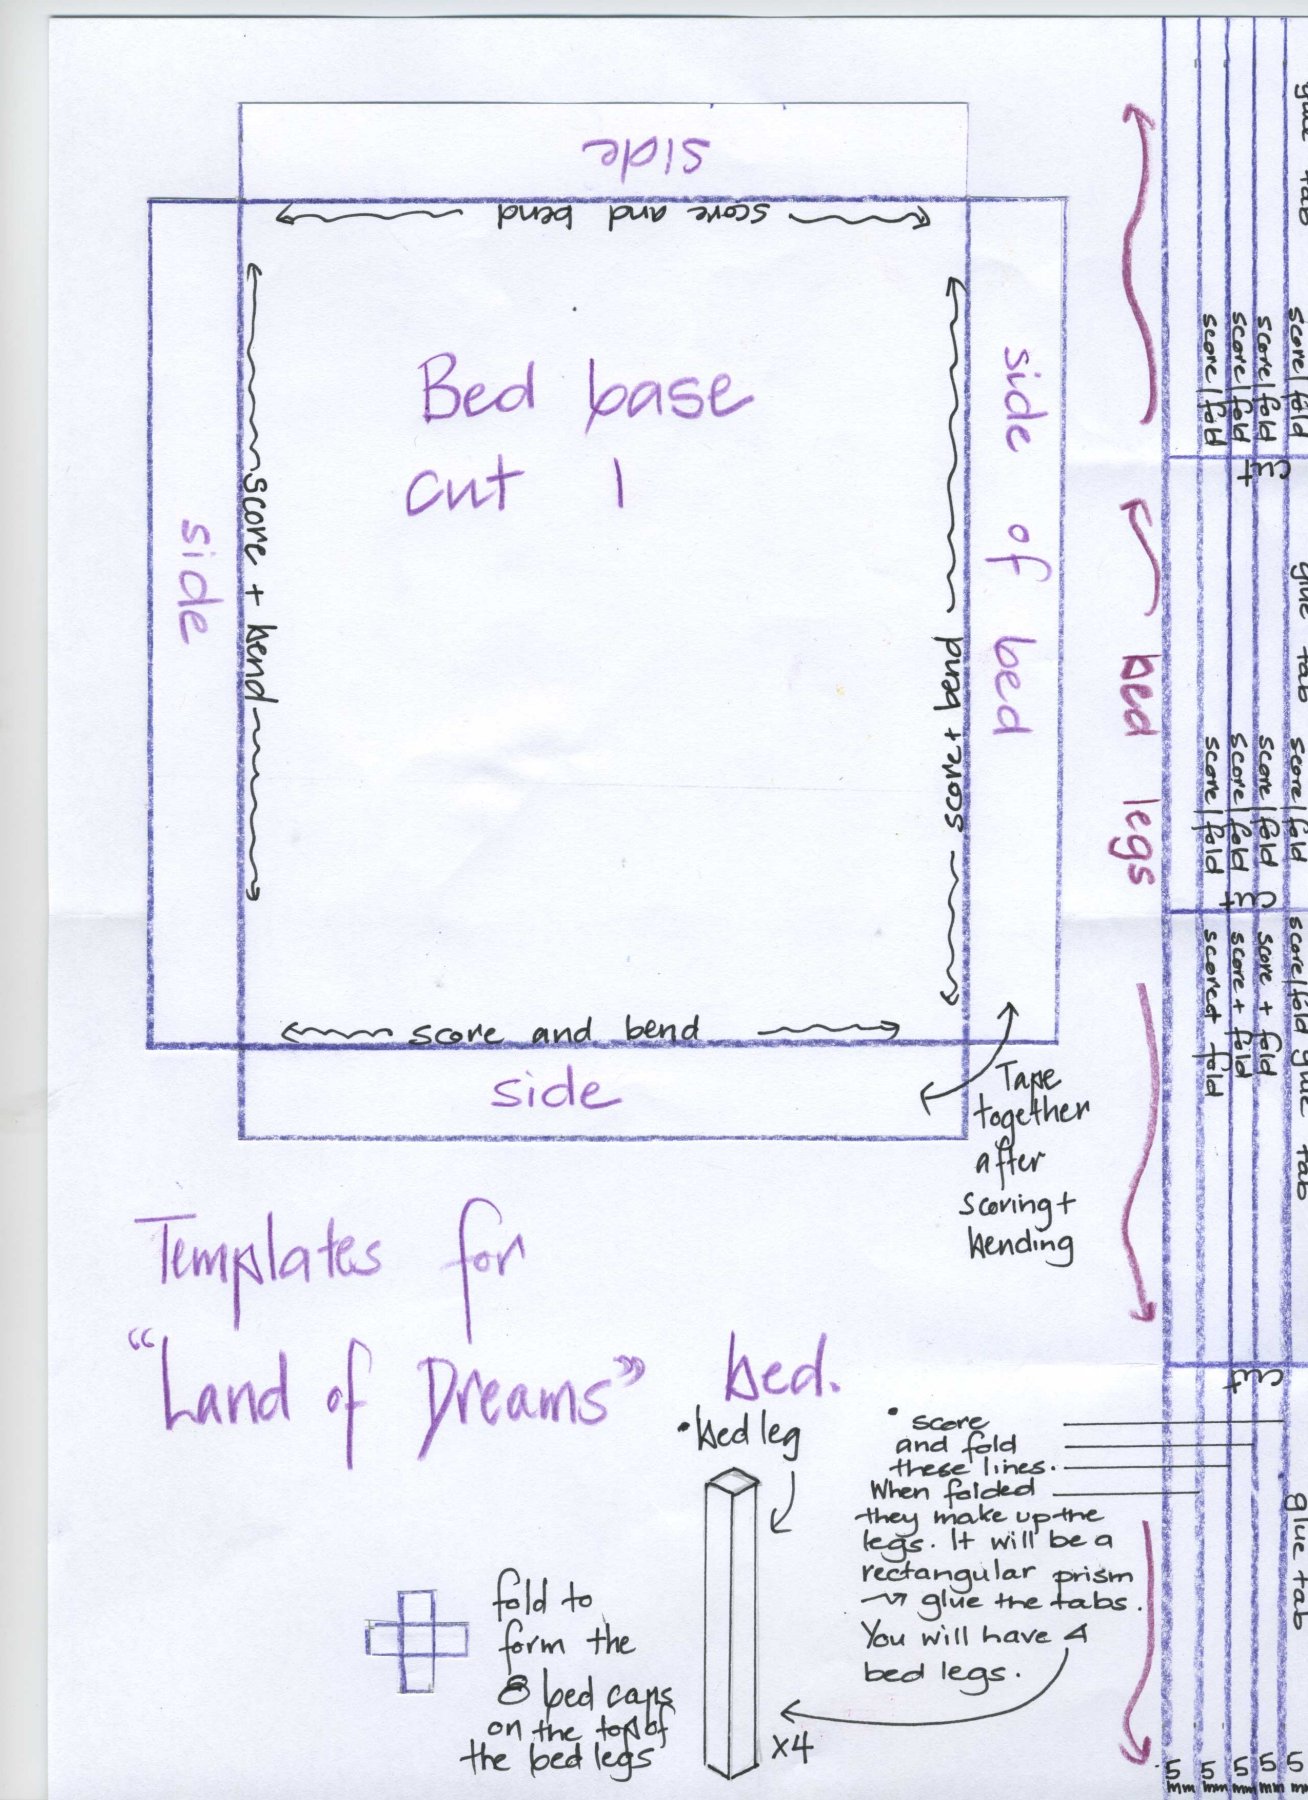 side
score and bend
Bed base
cut 1
side
score + bend
score + bend
side of bed
score and bend
side
Tape
together
after
scoring +
bending
Templates for
"Land of Dreams" bed.
• bed leg
x4
fold to
form the
8 bed caps
on the top of
the bed legs
• score
and fold
these lines.
When folded
they make up the
legs. It will be a
rectangular prism
glue the tabs.
You will have 4
bed legs.
bed legs
glue tab
score/fold
score/fold
score/fold
score/fold
cut
glue tab
score/fold
score/fold
score/fold
score/fold
cut
score/fold glue tab
score + fold
score + fold
score + fold
cut
glue tab
5 mm
5 mm
5 mm
5 mm
5 mm